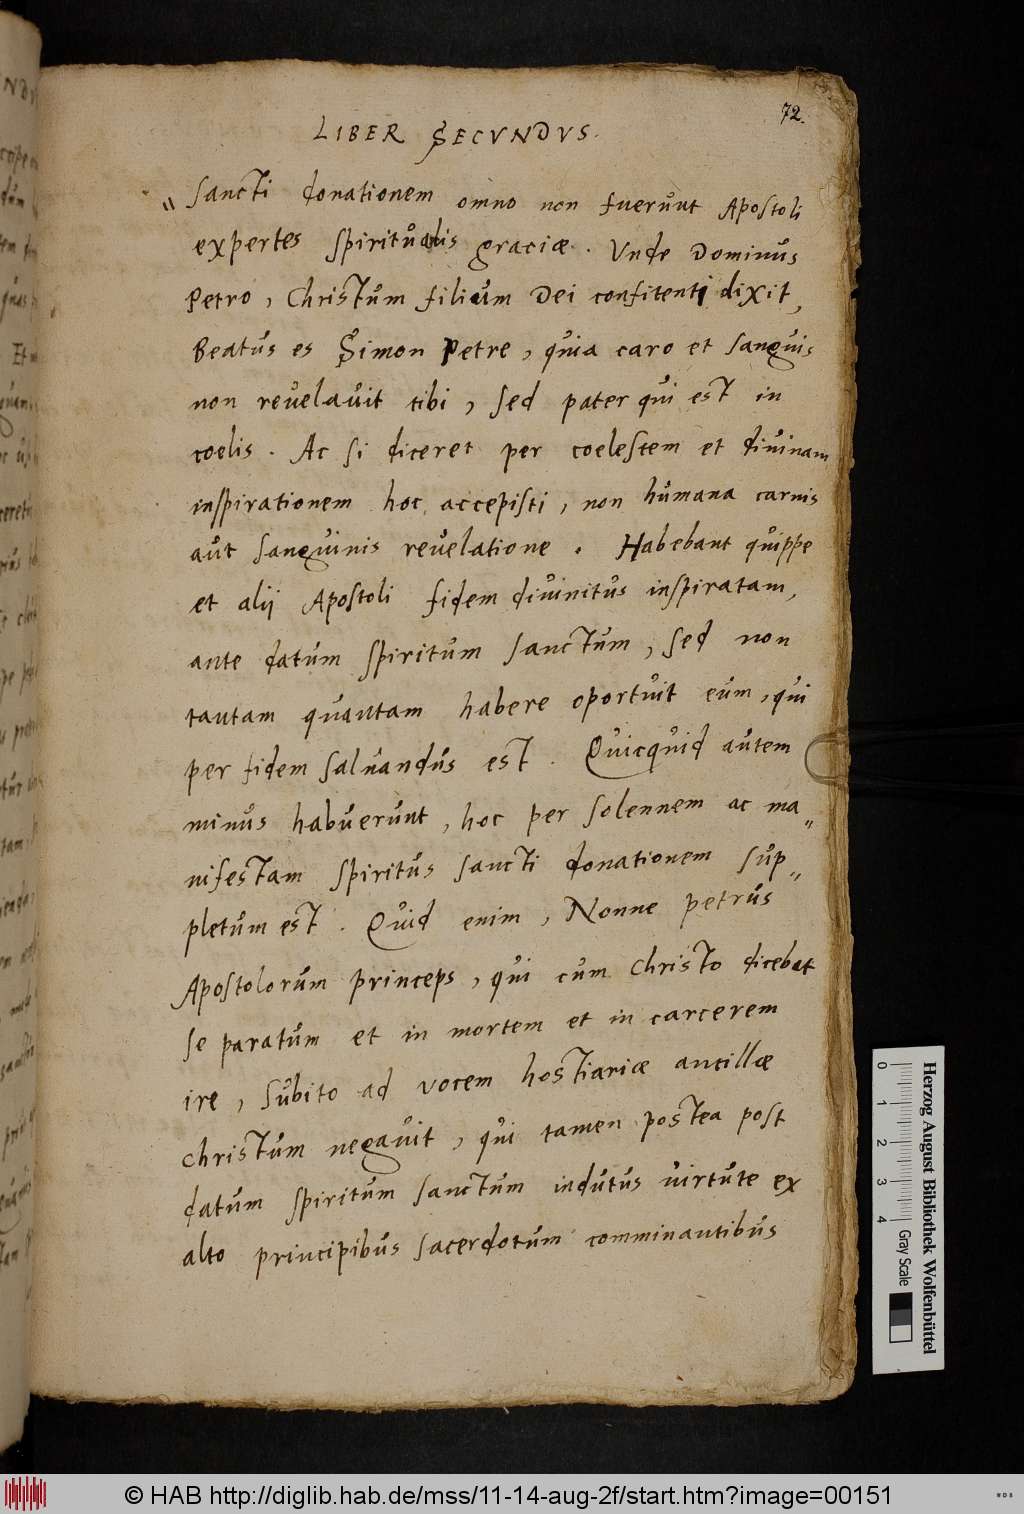 72.
LIBER SECVNDVS.
" Sancti donationem omno non fuerunt Apostoli
expertes spiritualis graciæ. Vnde Dominus
Petro, Christum filium Dei confitenti dixit,
Beatus es Simon Petre, quia caro et sanguis
non reuelauit tibi, sed pater qui est in
coelis. Ac si diceret per coelestem et diuinam
inspirationem hoc accepisti, non humana carnis
aut sanguinis reuelatione. Habebant quippe
et alij Apostoli fidem diuinitus inspiratam,
ante datum spiritum sanctum, sed non
tantam quantam habere oportuit eum, qui
per fidem saluandus est. Quicquid autem
minus habuerunt, hoc per solennem ac ma„
nifestam spiritus sancti donationem sup„
pletum est. Quid enim, Nonne petrus
Apostolorum princeps, qui cum Christo dicebat
se paratum et in mortem et in carcerem
ire, subito ad vocem hostiariæ ancillæ
christum negauit, qui tamen postea post
datum spiritum sanctum indutus uirtute ex
alto principibus sacerdotum comminantibus
0 1 2 3 4
Gray Scale
Herzog August Bibliothek Wolfenbüttel
© HAB http://diglib.hab.de/mss/11-14-aug-2f/start.htm?image=00151